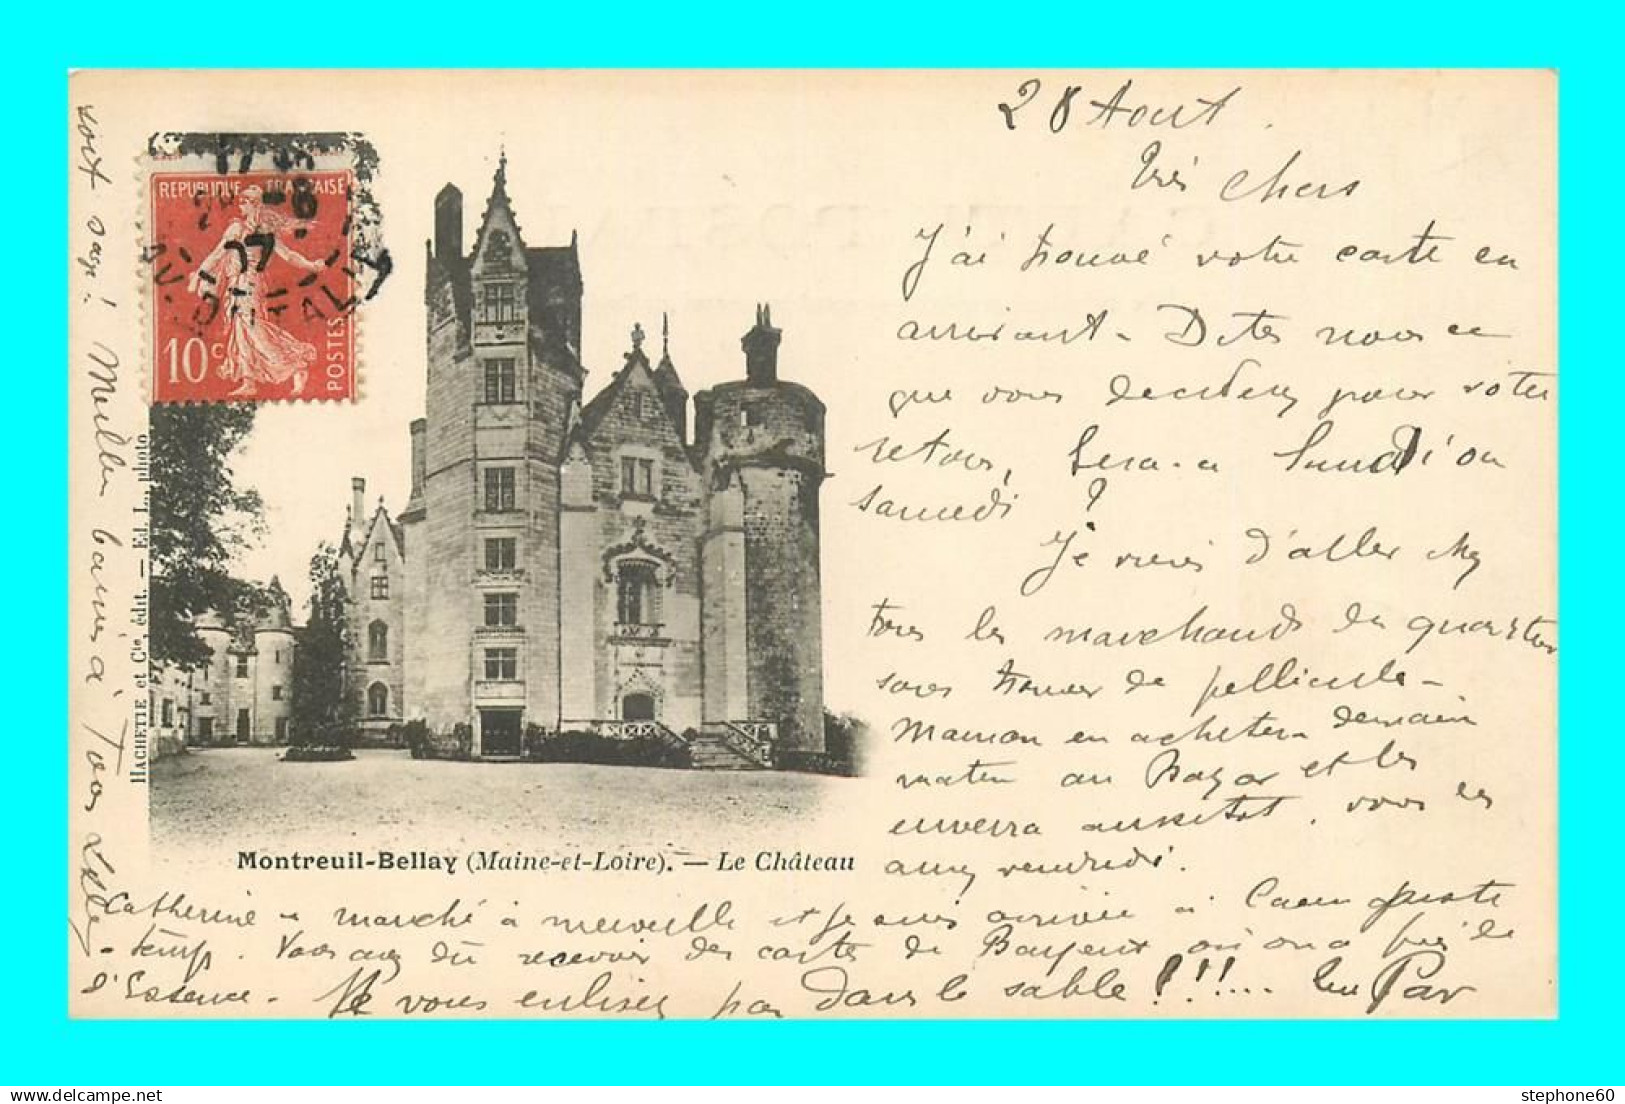 28 Aout.
Très chers
J'ai trouvé votre carte en
arrivant - Dites nous ce
que vous decidez pour votre
retour, Sera-ce lundi ou
samedi ?
Je viens d'aller chez
tous les marchands du quartier
sans trouver de pellicule -
Maman en achetera demain
matin au Bazar et les
enverra aussitot. vous les
aurez vendredi.
Catherine a marché à merveille et je suis arrivée à Caen juste
-temps. Vous avez dû recevoir des cartes de où on a pris de
l'Essence. - Ne vous enlisez pas dans le sable !!!....
soit sage ! Meilleurs baisers à Tous
REPUBLIQUE FRANÇAISE
10c
POSTES
17
-8
07
HACHETTE et Cie, édit. — Ed. L., photo
Montreuil-Bellay (Maine-et-Loire). — Le Château
stephone60